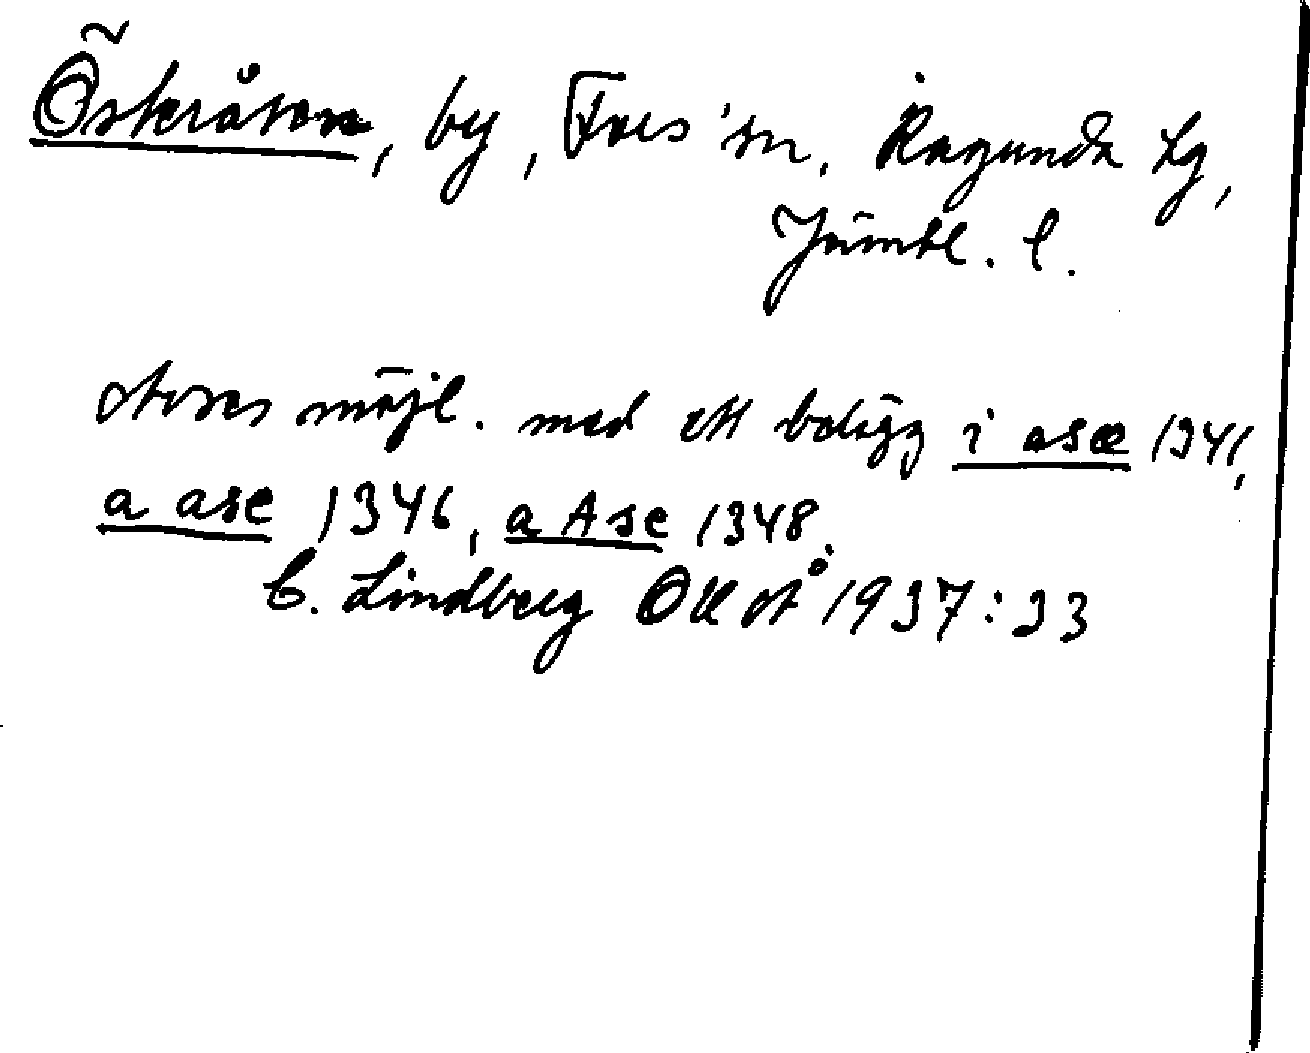 Österåsen, by, Fors sn, Ragunda tg,
Jämtl. l.
avses möjl. med ett belägg i asæ 1341,
a ase 1346, a Ase 1348.
C. Lindberg 1937:33